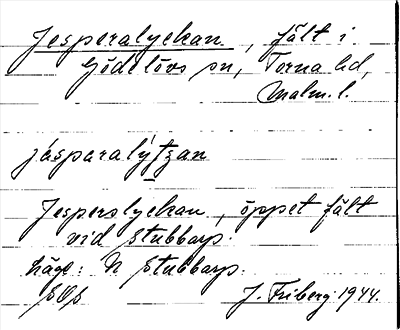 Jesperalyckan, fält i
Gödelövs sn, Torna hd,
Malm. l.
jásparalýtzan
Jesperslyckan, öppet fält
vid Stubbarp.
Läge: N Stubbarp.
J. Friberg 1944.